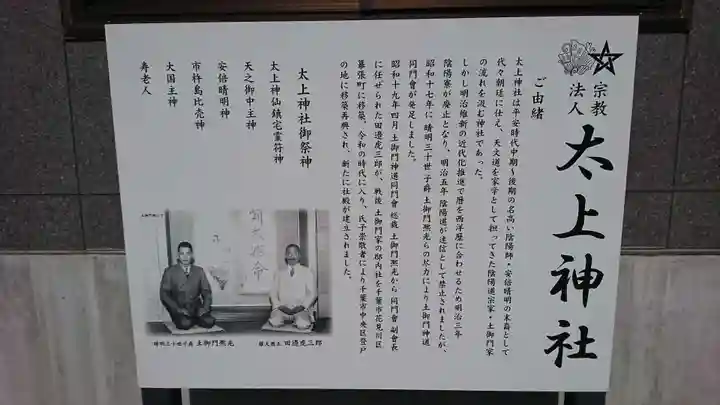 宗教
法人
太上神社
ご由緒
太上神社は平安時代中期~後期の名高い陰陽師・安倍晴明の末裔として
代々朝廷に仕え、天文道を家学として担ってきた陰陽道宗家・土御門家
の流れを汲む神社であった。
しかし明治維新の近代化推進で暦を西洋歴に合わせるため明治三年
陰陽寮が廃止となり、明治五年 陰陽道が迷信として禁止されましたが、
昭和十七年に 晴明三十世 子爵 土御門熈光らの尽力により土御門神道
同門會が発足しました。
昭和十九年四月 土御門神道同門會 総裁 土御門熈光から 同門會 副會長
に任せられた田邊虎三郎が、戦後 土御門家の邸内社を千葉市花見川区
幕張町に移築。令和の時代に入り、氏子崇敬者により千葉市中央区登戸
の地に移築再興され、新たに社殿が建立されました。
太上神社御祭神
太上神仙鎮宅霊符神
天之御中主神
安倍晴明神
市杵島比売神
大国主神
寿老人
土御門熈光
田邊虎三郎